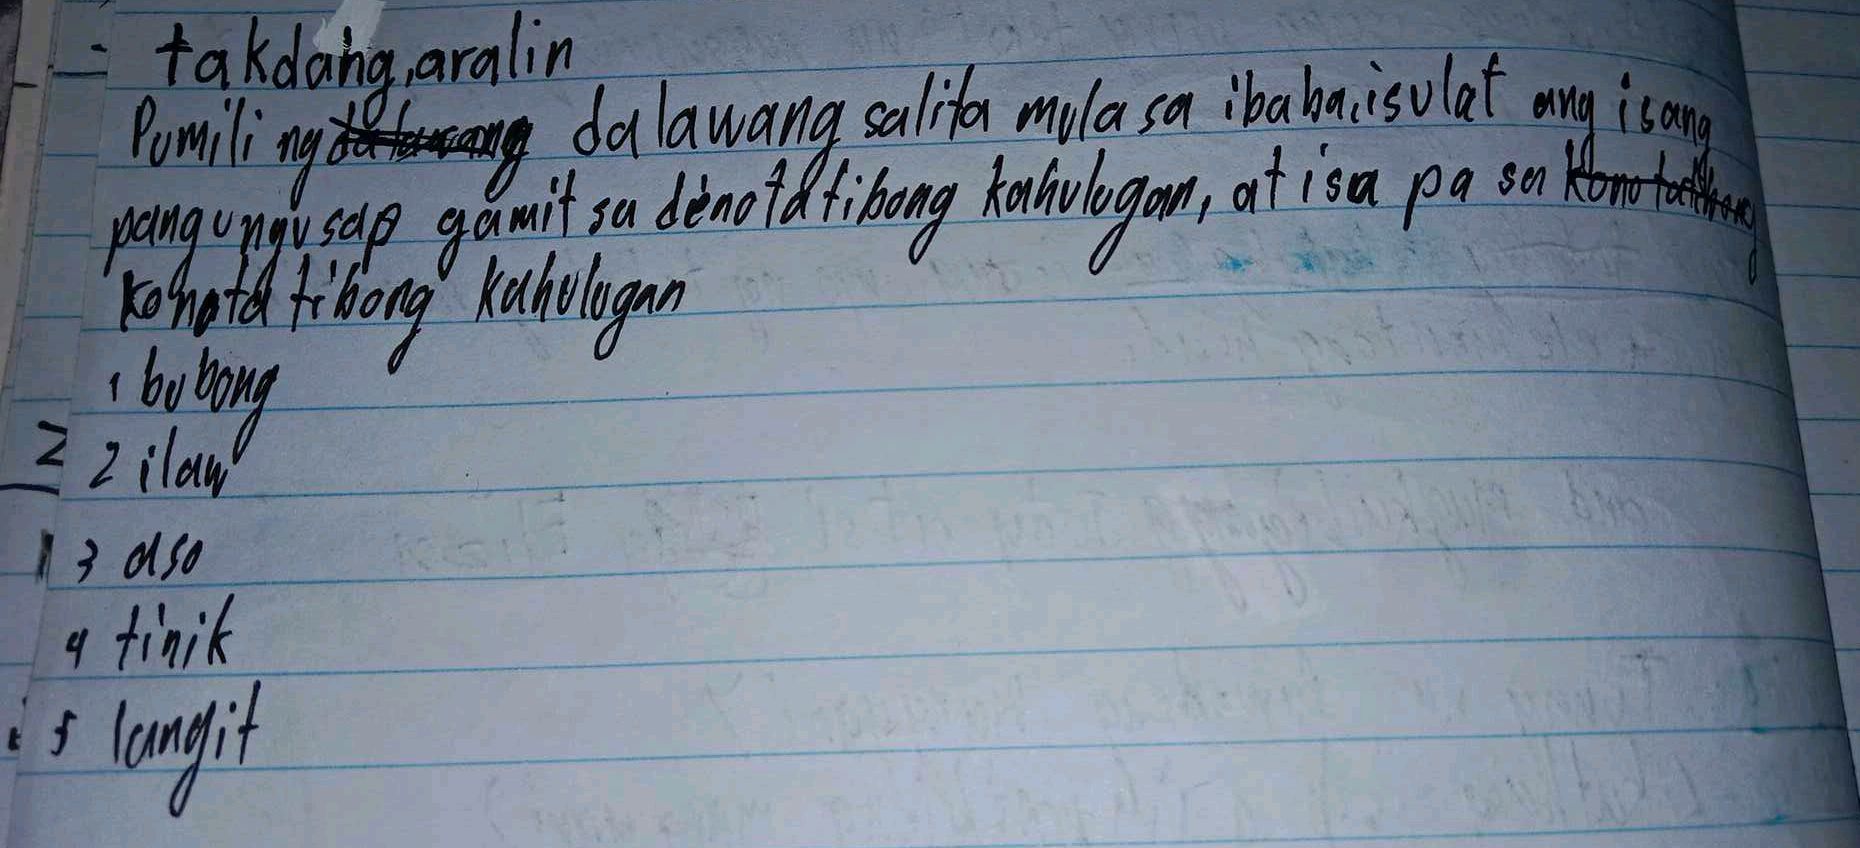 - takdang, aralin
Pumili ng dalawang salita mula sa ibaba, isulat ang isang
pangungusap gamit sa denotatibong kahulugan, at isa pa sa
konotatibong kahulugan
1 bubong
2 ilaw
3 aso
4 tinik
5 langit